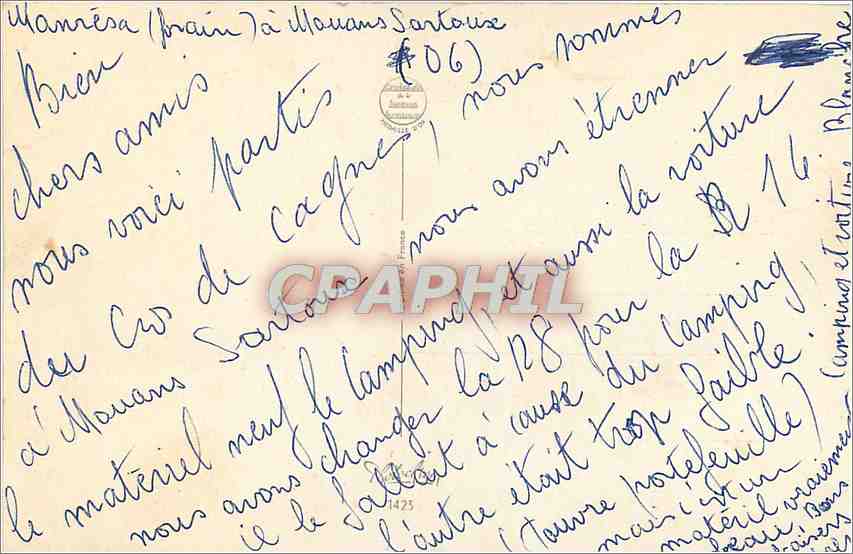 Manrésa (train) à Mouans Sartoux
(06)
Bien
chers amis
nous voici partis
du Cros de Cagnes, nous sommes
à Mouans Sartoux nous avons étrenner
le matériel neuf le camping, et aussi la voiture
nous avons changer la 128 pour la R 14.
il le fallait à cause du camping,
l'autre était trop faible.
(Pauvre portefeuille)
mais c'est un
matériel vraiment
beau. Bons
baisers
Camping et voiture Blanche
MEDAILLE D'OR
en France
1423
CPAPHIL